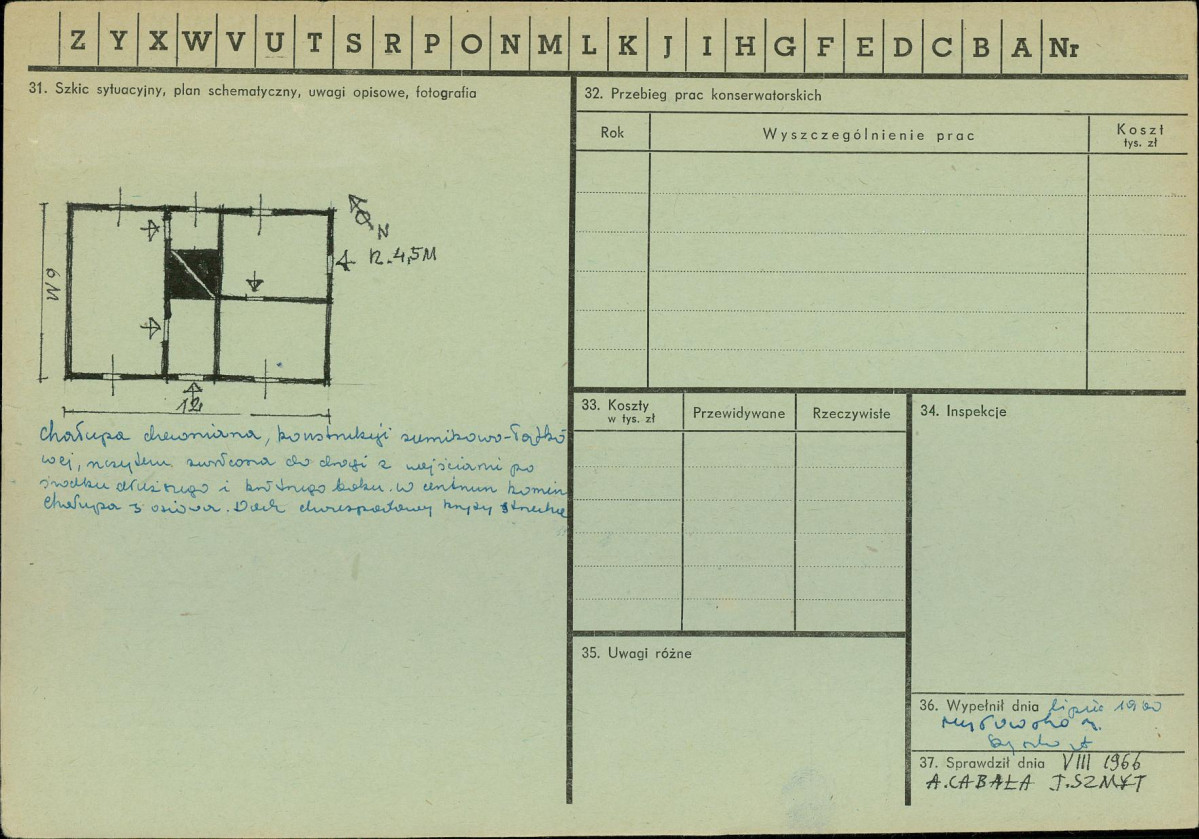 Z Y X W V U T S R P O N M L K J I H G F E D C B A Nr
31. Szkic sytuacyjny, plan schematyczny, uwagi opisowe, fotografia
N
R. 4,5M
6 M
12
Chałupa drewniana, konstrukcji sumikowo-łątko
wej, szczytem zwrócona do drogi z wejściami po
środku dłuższego i krótszego boku. W centrum komin
Chałupa 3 osiowa. Dach dwuspadowy kryty strzechą
32. Przebieg prac konserwatorskich
Rok
Wyszczególnienie prac
Koszt
tys. zł
33. Koszty
w tys. zł
Przewidywane
Rzeczywiste
34. Inspekcje
35. Uwagi różne
36. Wypełnił dnia lipiec 1960
37. Sprawdził dnia VIII 1966
A. CABAŁA J. SZMYT